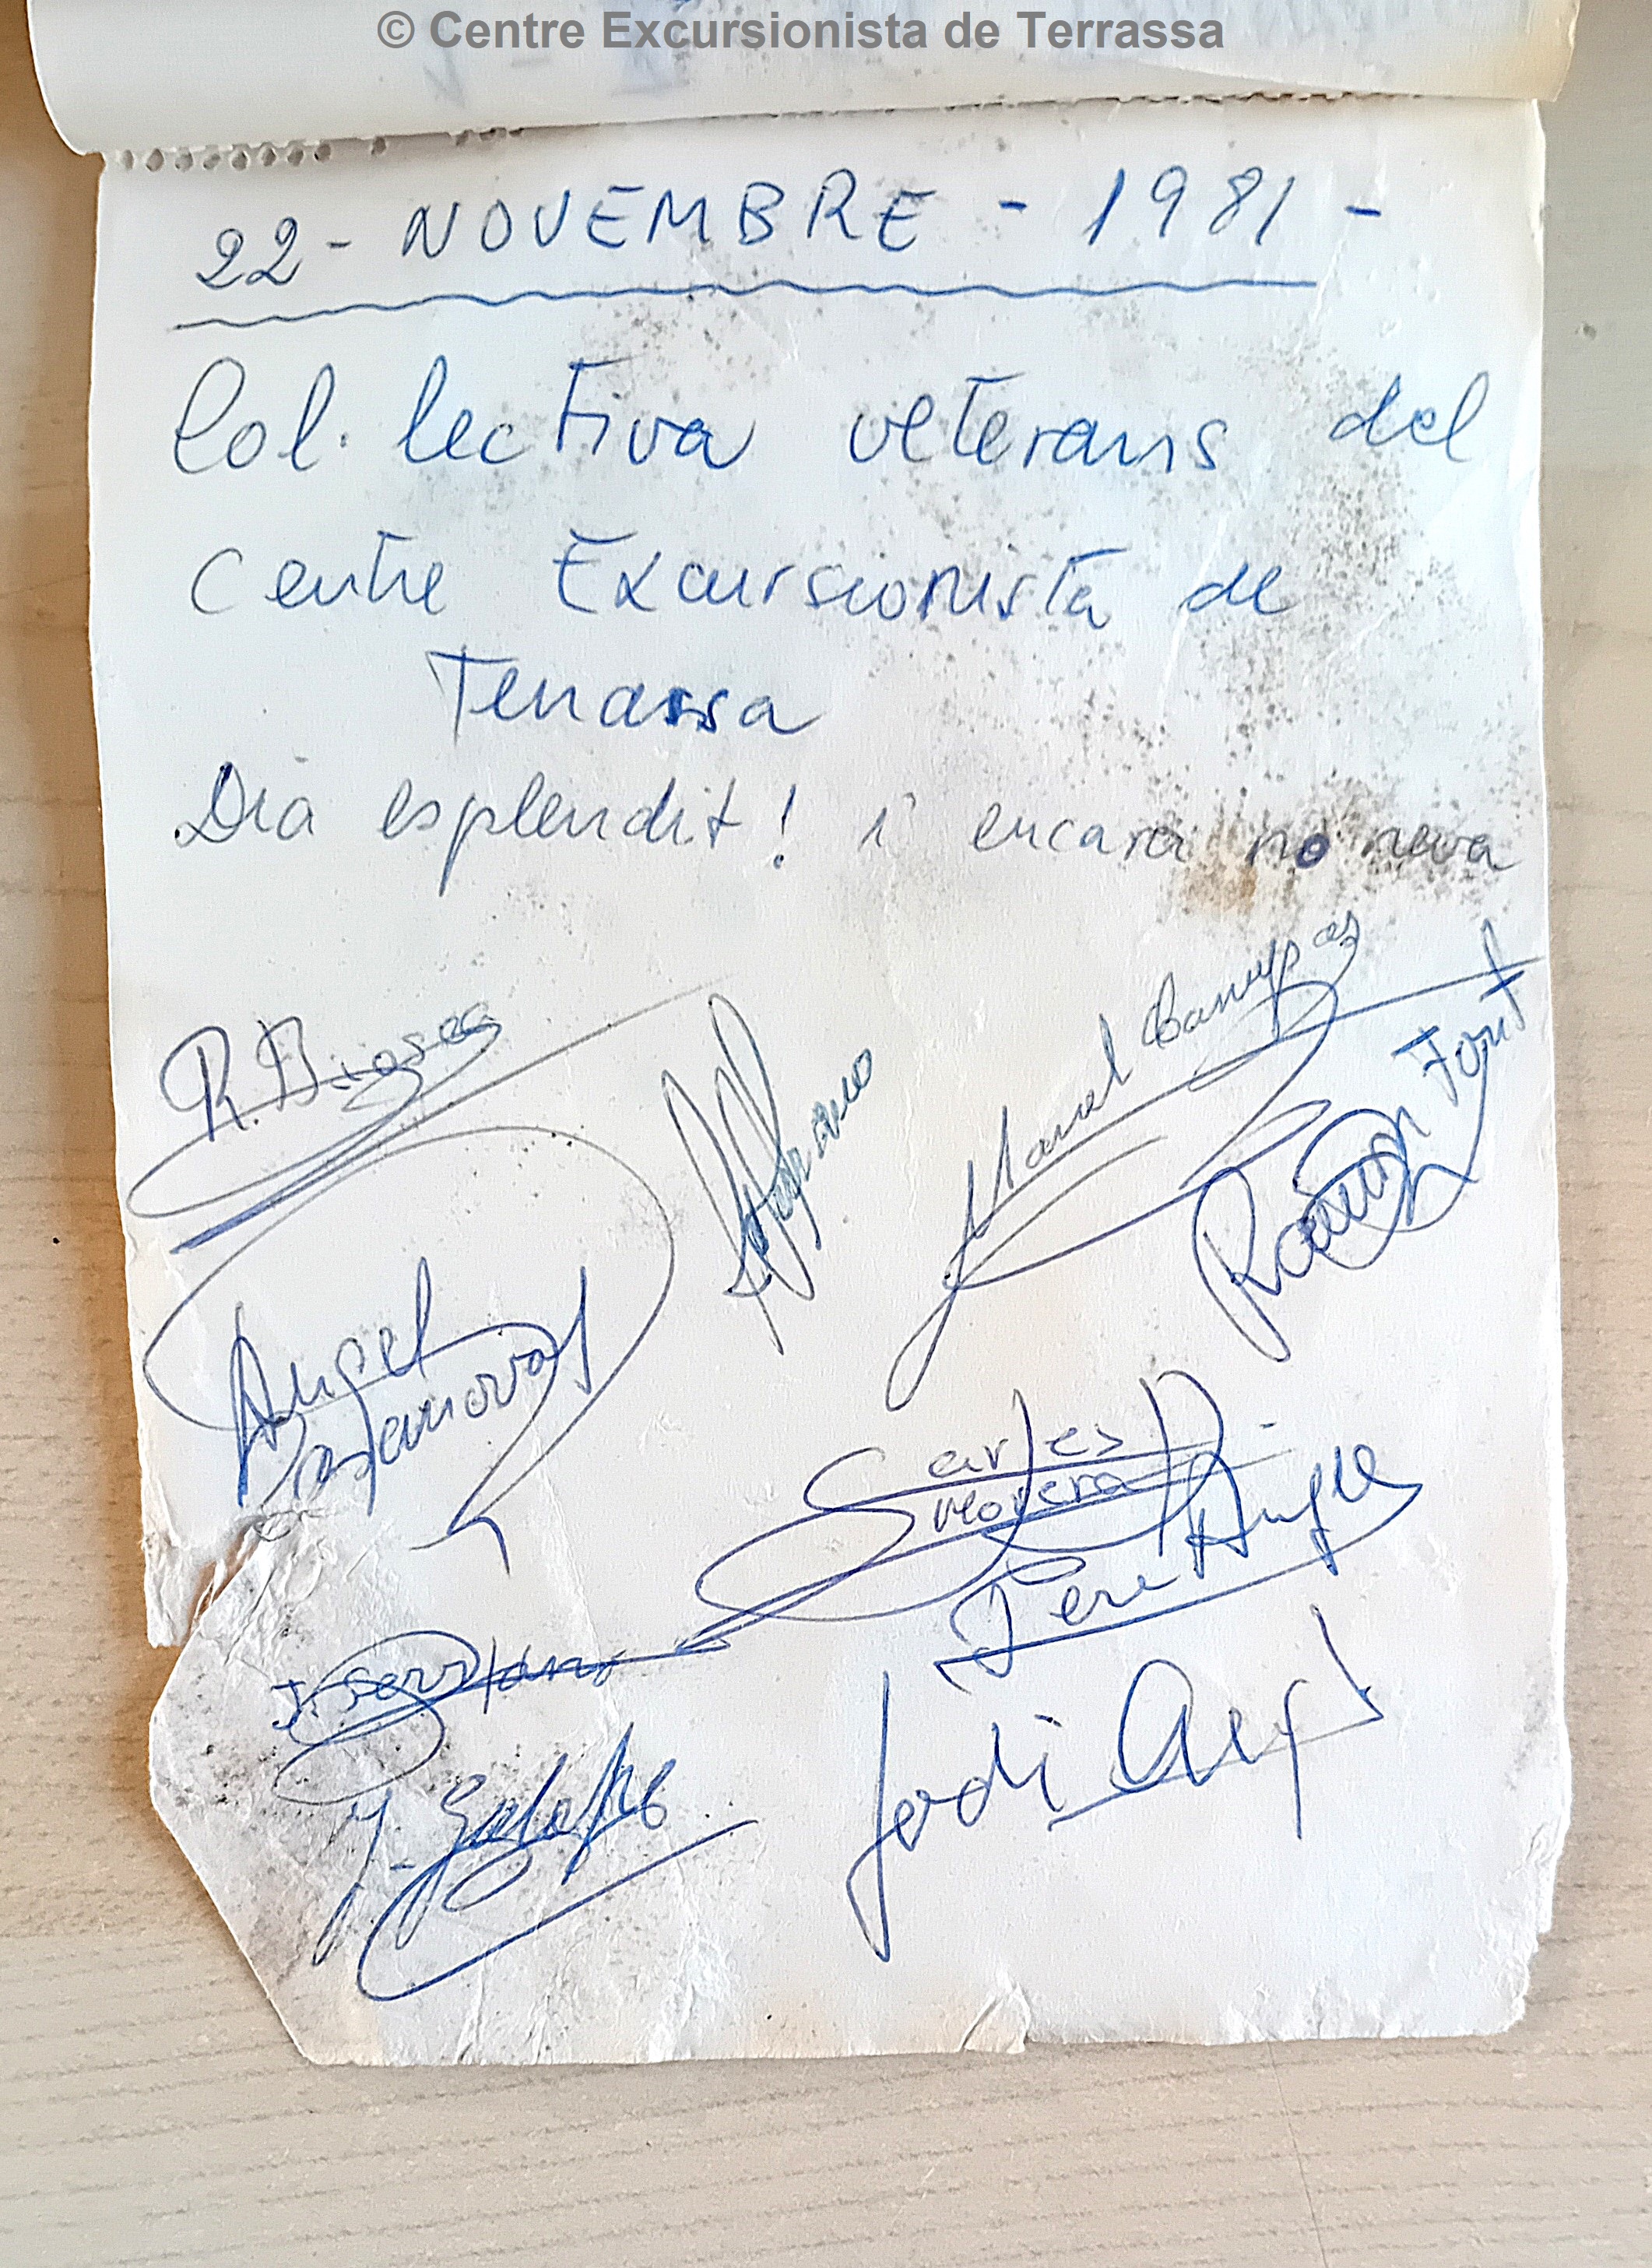 © Centre Excursionista de Terrassa
22 - NOVEMBRE - 1981 -
Col·lectiva veterans del
Centre Excursionista de
Terrassa
Dia esplendit! i encara no neva
R. Bigorra
Manel Campas
Ramon Font
Angel Casanovas
Carles Morera
Pere Angles
J. Serrano
Jordi